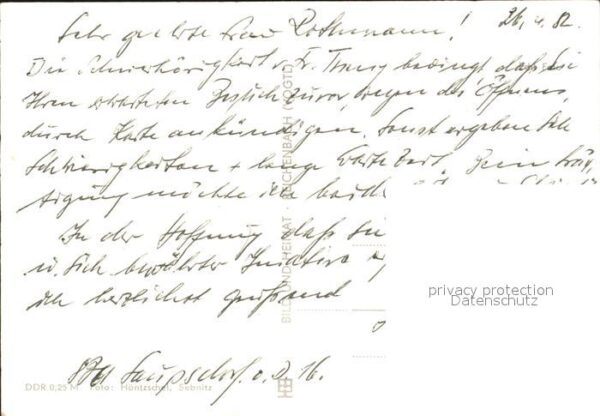 26.4.82.
Sehr geehrte Frau Rothmann!
Die Schwerhörigkeit v. Fr. bedingt, daß Sie
Ihren erbetenen Besuch zuvor, wegen des Öffnens,
durch Karte ankündigen. Sonst ergeben sich
Schwierigkeiten + lange Wartezeit.
möchte ich
In der Hoffnung daß
u. sich bewährter Initiative
ich herzlichst grüßend
Saupsdorf. o. D. 16.
BILD UND HEIMAT · REICHENBACH (VOGTL)
DDR 0,25 M Foto: Häntzschel, Sebnitz
privacy protection
Datenschutz